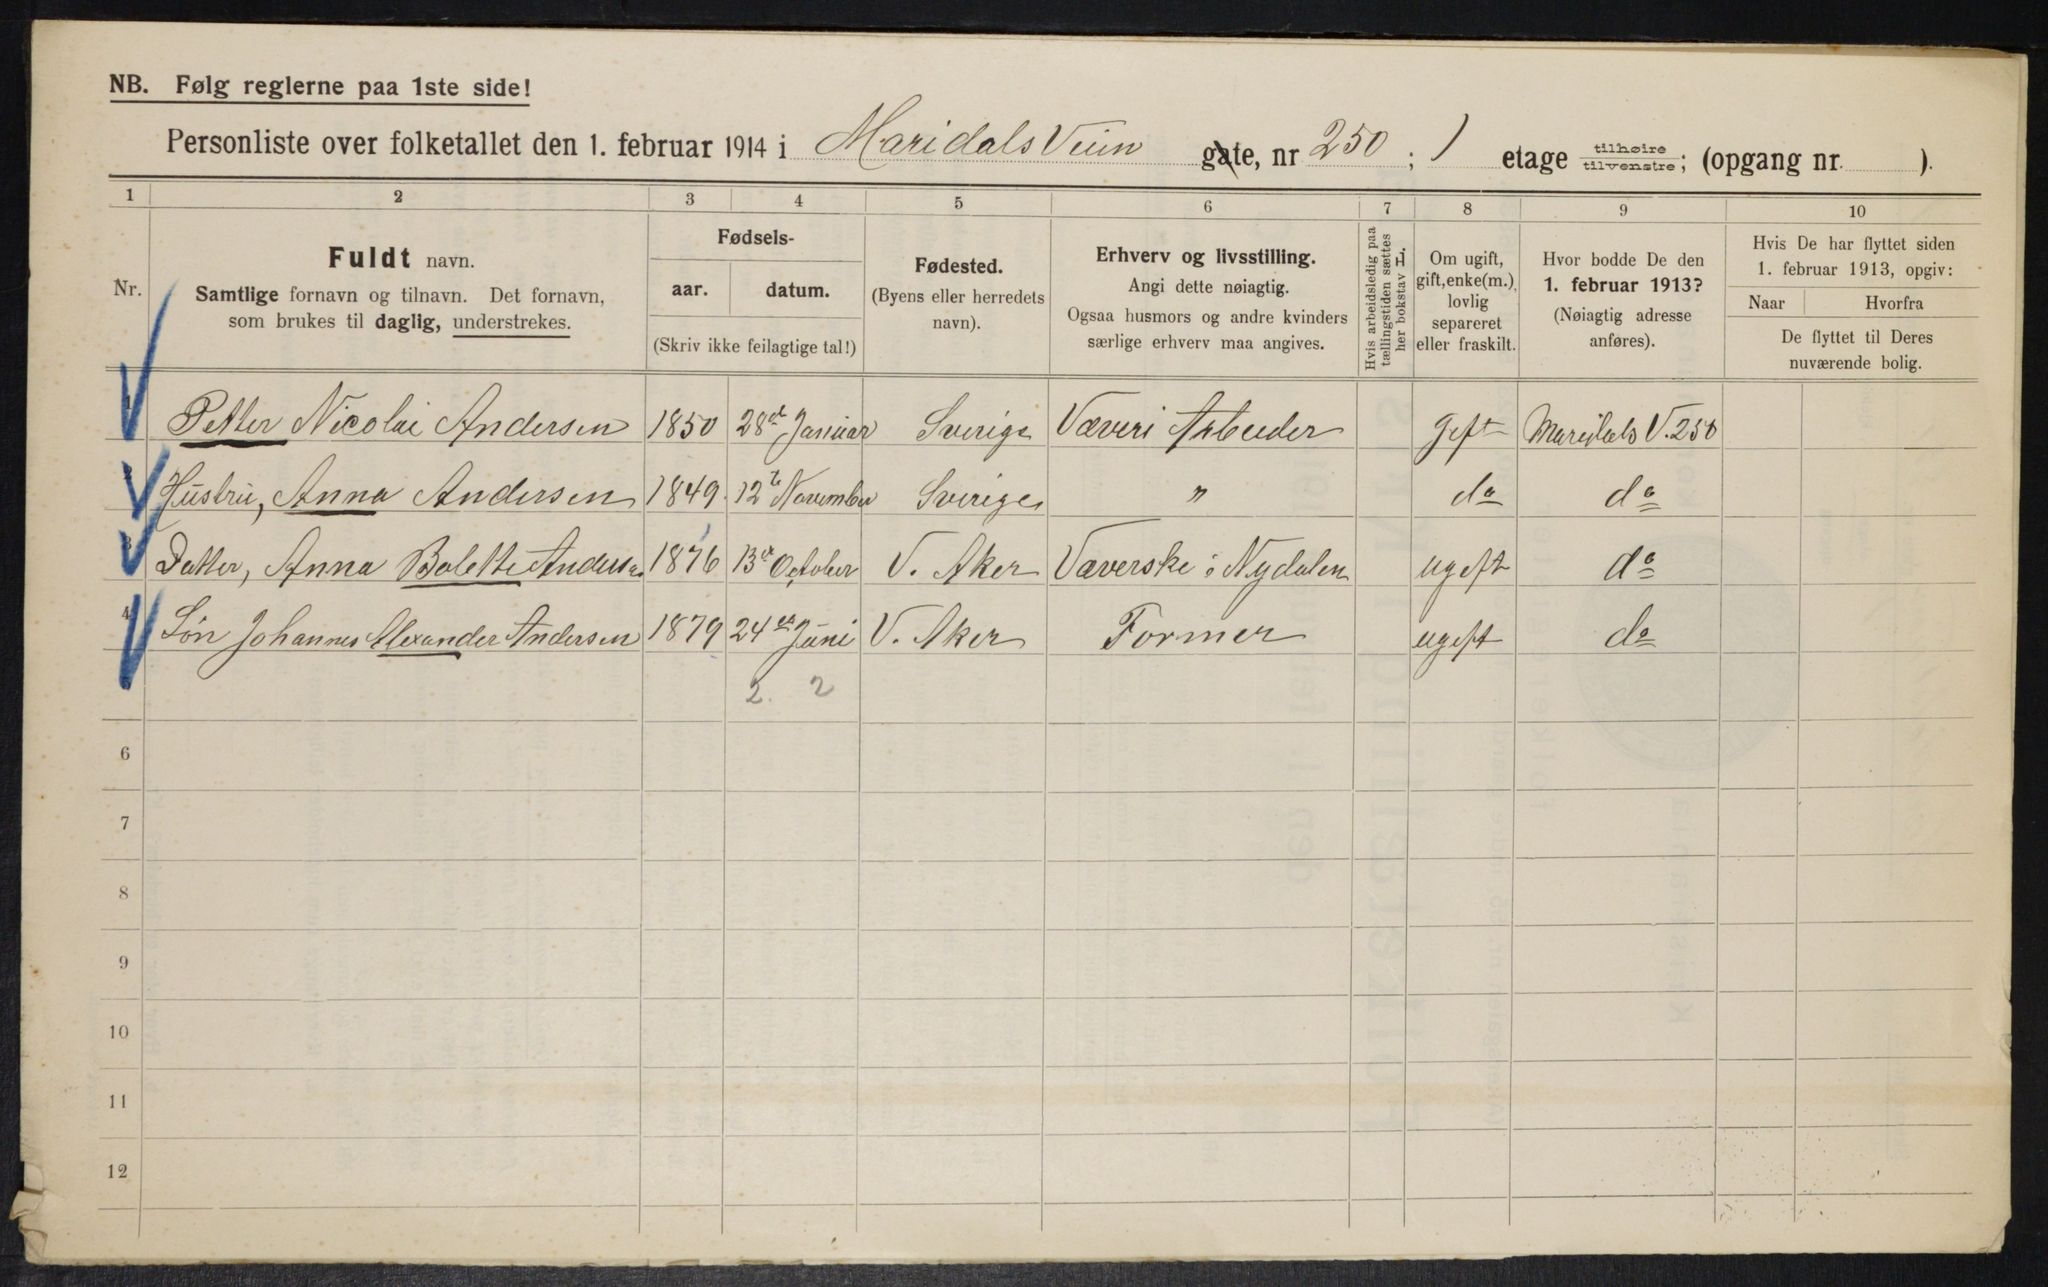 NB. Følg reglerne paa 1ste side!
Personliste over folketallet den 1. februar 1914 i Maridals Veien gate, nr 250 ; 1 etage tilhøire tilvenstre; (opgang nr. ).
1 2 3 4 5 6 7 8 9 10
Nr.
Fuldt navn.
Samtlige fornavn og tilnavn. Det fornavn,
som brukes til daglig, understrekes.
Fødsels-
aar. datum.
(Skriv ikke feilagtige tal!)
Fødested.
(Byens eller herredets
navn).
Erhverv og livsstilling.
Angi dette nøiagtig.
Ogsaa husmors og andre kvinders
særlige erhverv maa angives.
Hvis arbeidsledig paa
tællingstiden sættes
her bokstav L.
Om ugift,
gift, enke(m.),
lovlig
separeret
eller fraskilt.
Hvor bodde De den
1. februar 1913?
(Nøiagtig adresse
anføres).
Hvis De har flyttet siden
1. februar 1913, opgiv:
Naar Hvorfra
De flyttet til Deres
nuværende bolig.
1 Petter Nicolai Andersen 1850 28de Januar Sverige Væveri Arbeider gift Maridals V. 250
2 Hustru, Anna Andersen 1849 12te November Sverige " do do
3 Datter, Anna Bolette Andersen 1876 13de October V. Aker Væverske i Nydalen ugift do
4 Søn Johannes Alexander Andersen 1879 24de Juni V. Aker Former ugift do
5 2. 2
6
7
8
9
10
11
12